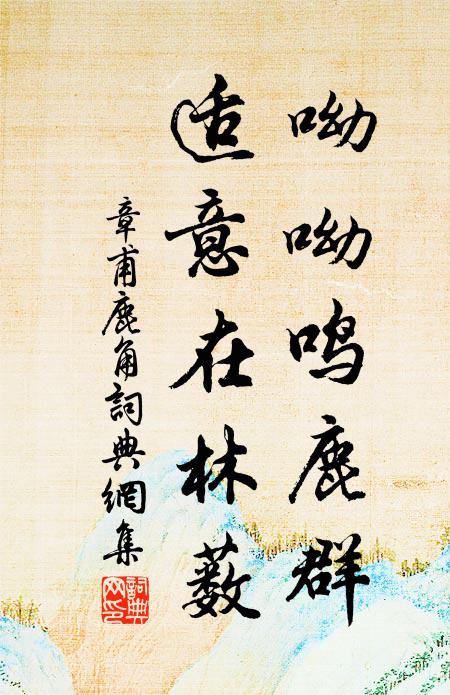 呦呦鸣鹿群
适意在林薮
章甫鹿角詞典網集
詞典网印